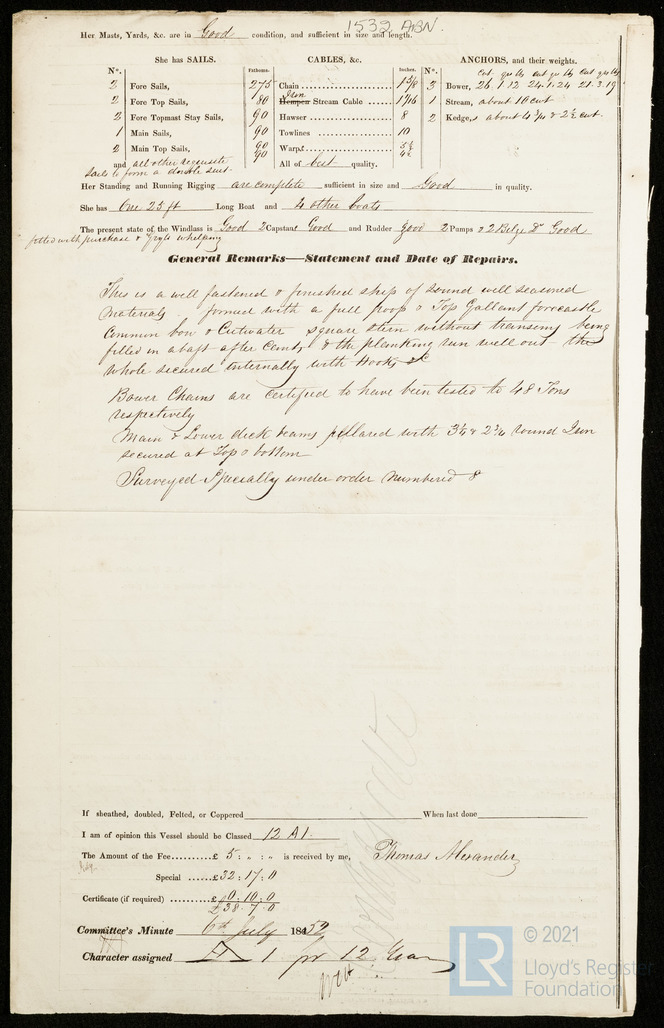 1532 ABN.
Her Masts, Yards, &c. are in Good condition, and sufficient in size and length.
She has SAILS.
N°.
2 Fore Sails,
2 Fore Top Sails,
2 Fore Topmast Stay Sails,
1 Main Sails,
2 Main Top Sails,
and all other requisite
Sails to form a double suit.
CABLES, &c.
Fathoms. Inches.
275 Chain 1 5/8
80 Hempen Iron Stream Cable 1 1/16
90 Hawser 8
90 Towlines 10
90 Warps 5 1/2
90 4 1/2
All of best quality.
ANCHORS, and their weights.
N°. cwt qrs lbs cwt qrs lbs cwt qrs lbs
3 Bower, 26.1.12 24.1.24 21.3.19
1 Stream, about 10 cwt
2 Kedges about 4 3/4 & 2 1/2 cwt.
Her Standing and Running Rigging are complete sufficient in size and Good in quality.
She has One 25 ft Long Boat and 4 other boats
The present state of the Windlass is Good 2 Capstans Good and Rudder good 2 Pumps & 2 Bilge Do Good
fitted with purchase & whelping
General Remarks—Statement and Date of Repairs.
This is a well fastened & finished ship of sound well seasoned
materials. formed with a full poop & Top Gallant forecastle
Common bow & Cutwater square stern without transoms being
filled in abaft after Cants, & the planking run well out the
whole secured internally with Hooks &c
Bower Chains are certified to have been tested to 48 Tons
respectively
Main & Lower deck beams pillared with 3 1/4 & 2 3/4 round Iron
secured at Top & bottom
Surveyed Specially under order numbered 8
If sheathed, doubled, Felted, or Coppered When last done
I am of opinion this Vessel should be Classed 12 A1.
The Amount of the Fee £ 5 : „ : „ is received by me, Thomas Alexander
Special £32 : 17 : 0
Certificate (if required) £ 0 : 10 : 0
£38 . 7 . 0
Committee's Minute 6th July 1852
Character assigned A 1 for 12 Years
© 2021
LR
Lloyd's Register
Foundation